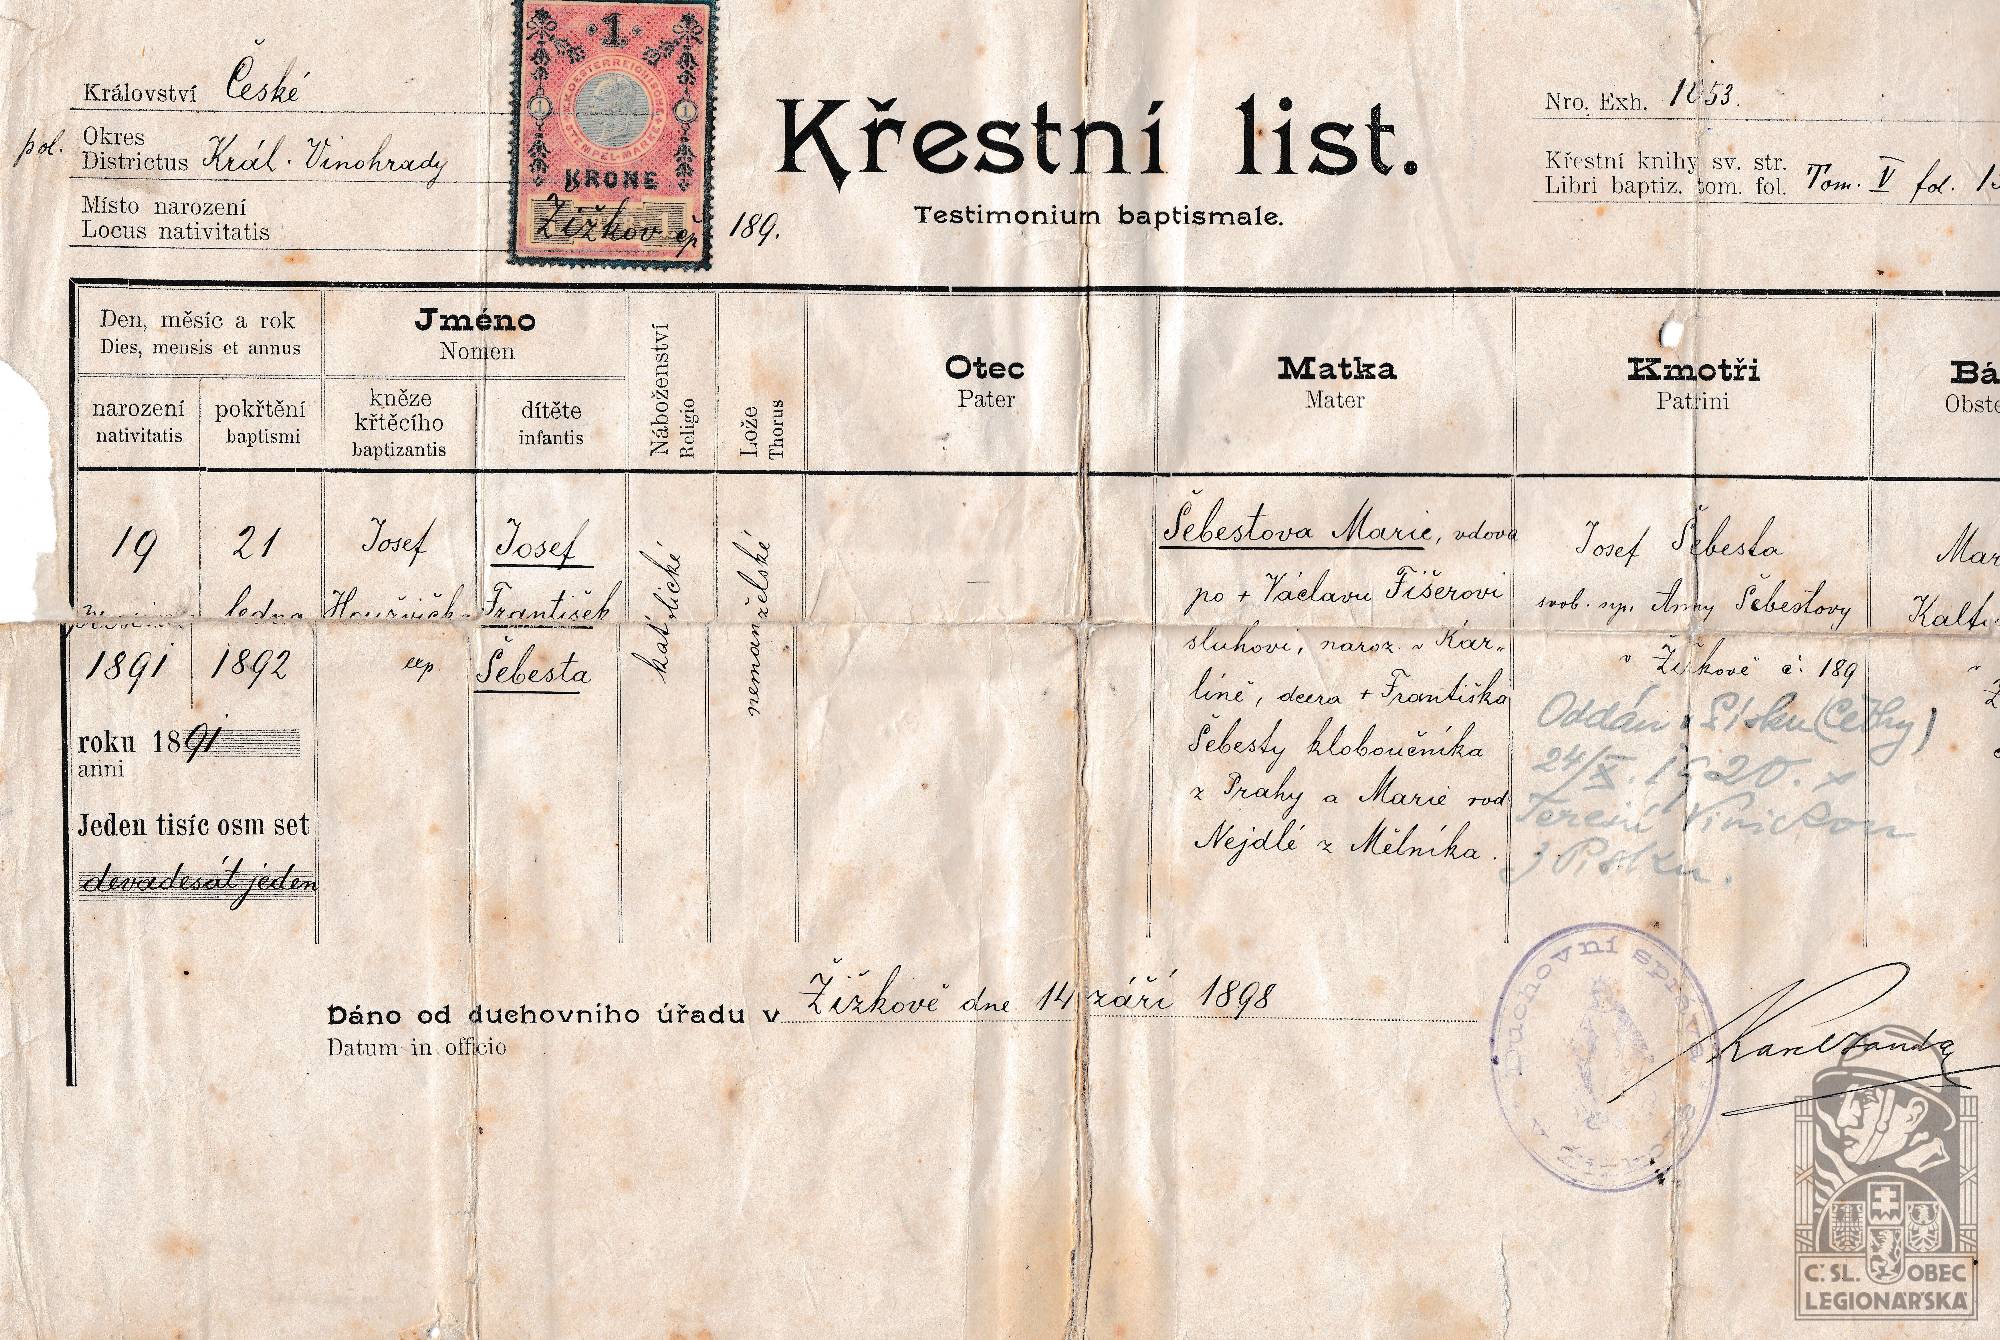 Království České
Křestní list.
Nro. Exh. 1053.
pol. Okres
Districtus Král. Vinohrady
Křestní knihy sv. str.
Libri baptiz. tom. fol. Tom. V fol.
Místo narození
Locus nativitatis Žižkov čp 189.
Testimonium baptismale.
1
K.K. OESTERREICHISCHE STEMPEL-MARKE
KRONE
Den, měsíc a rok
Dies, mensis et annus
Jméno
Nomen
Náboženství
Religio
Lože
Thorus
Otec
Pater
Matka
Mater
Kmotři
Patrini
Bá
Obste
narození
nativitatis
pokřtění
baptismi
kněze
křtěcího
baptizantis
dítěte
infantis
19
1891
21
ledna
1892
roku 1891
anni
Jeden tisíc osm set
devadesát jeden
Josef
Josef
František
Šebesta
katolické
nemanželské
Šebestova Marie, vdova
po + Václavu Fišerovi
sluhovi, naroz. v Kar„
líně, dcera + Františka
Šebesty kloboučníka
z Prahy a Marie rod
Nejdlé z Mělníka.
Josef Šebesta
svob. syn. Anny Šebestovy
v Žižkově č: 189
Oddán v Písku (Čechy)
24/X. 1920. s
Terezií
z Písku.
Mar
Kalt
Dáno od duchovního úřadu v Žižkově dne 14 září 1898
Datum in officio
Duchovní správa
Č.SL. OBEC
LEGIONÁŘSKÁ